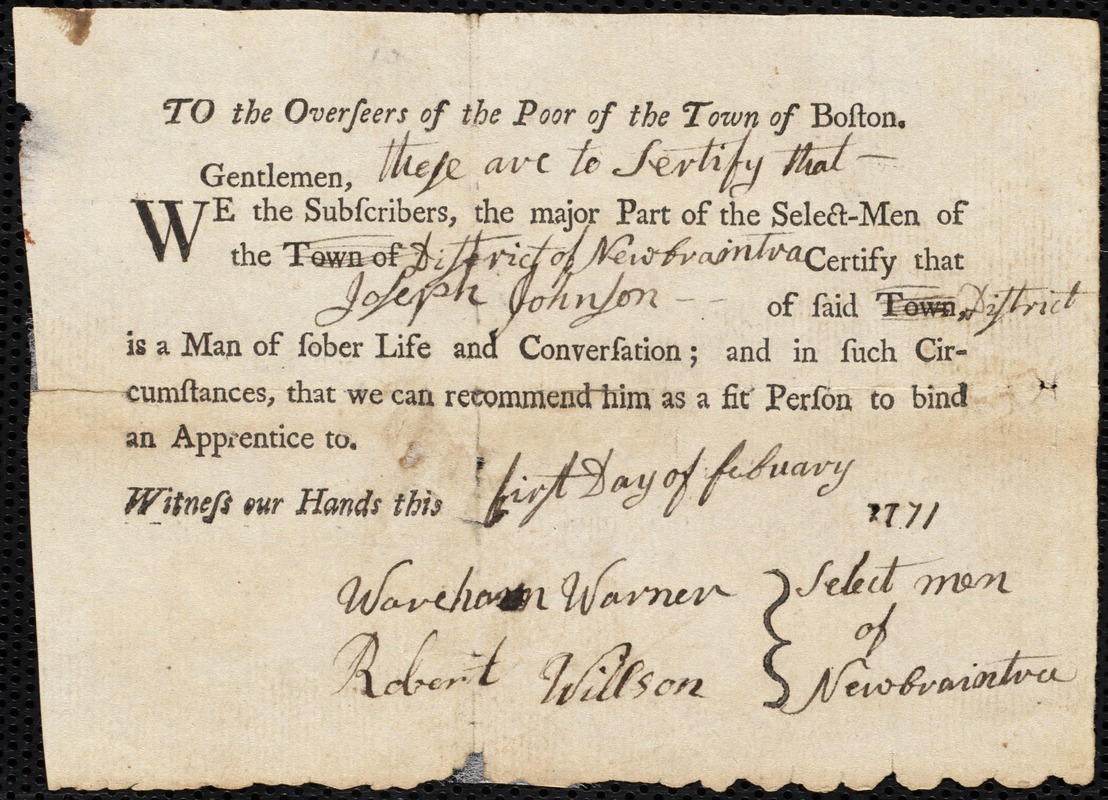 TO the Overſeers of the Poor of the Town of Boſton.
Gentlemen, theſe are to Sertify that —
WE the Subſcribers, the major Part of the Select-Men of
the Town of District of Newbraintra Certify that
Joseph Johnson -- of ſaid Town, District
is a Man of ſober Life and Converſation; and in ſuch Cir-
cumſtances, that we can recommend him as a fit Perſon to bind
an Apprentice to.
Witneſs our Hands this first Day of febuary
1771
Wareham Warner } Select men
of
Robert Willson Newbraintra